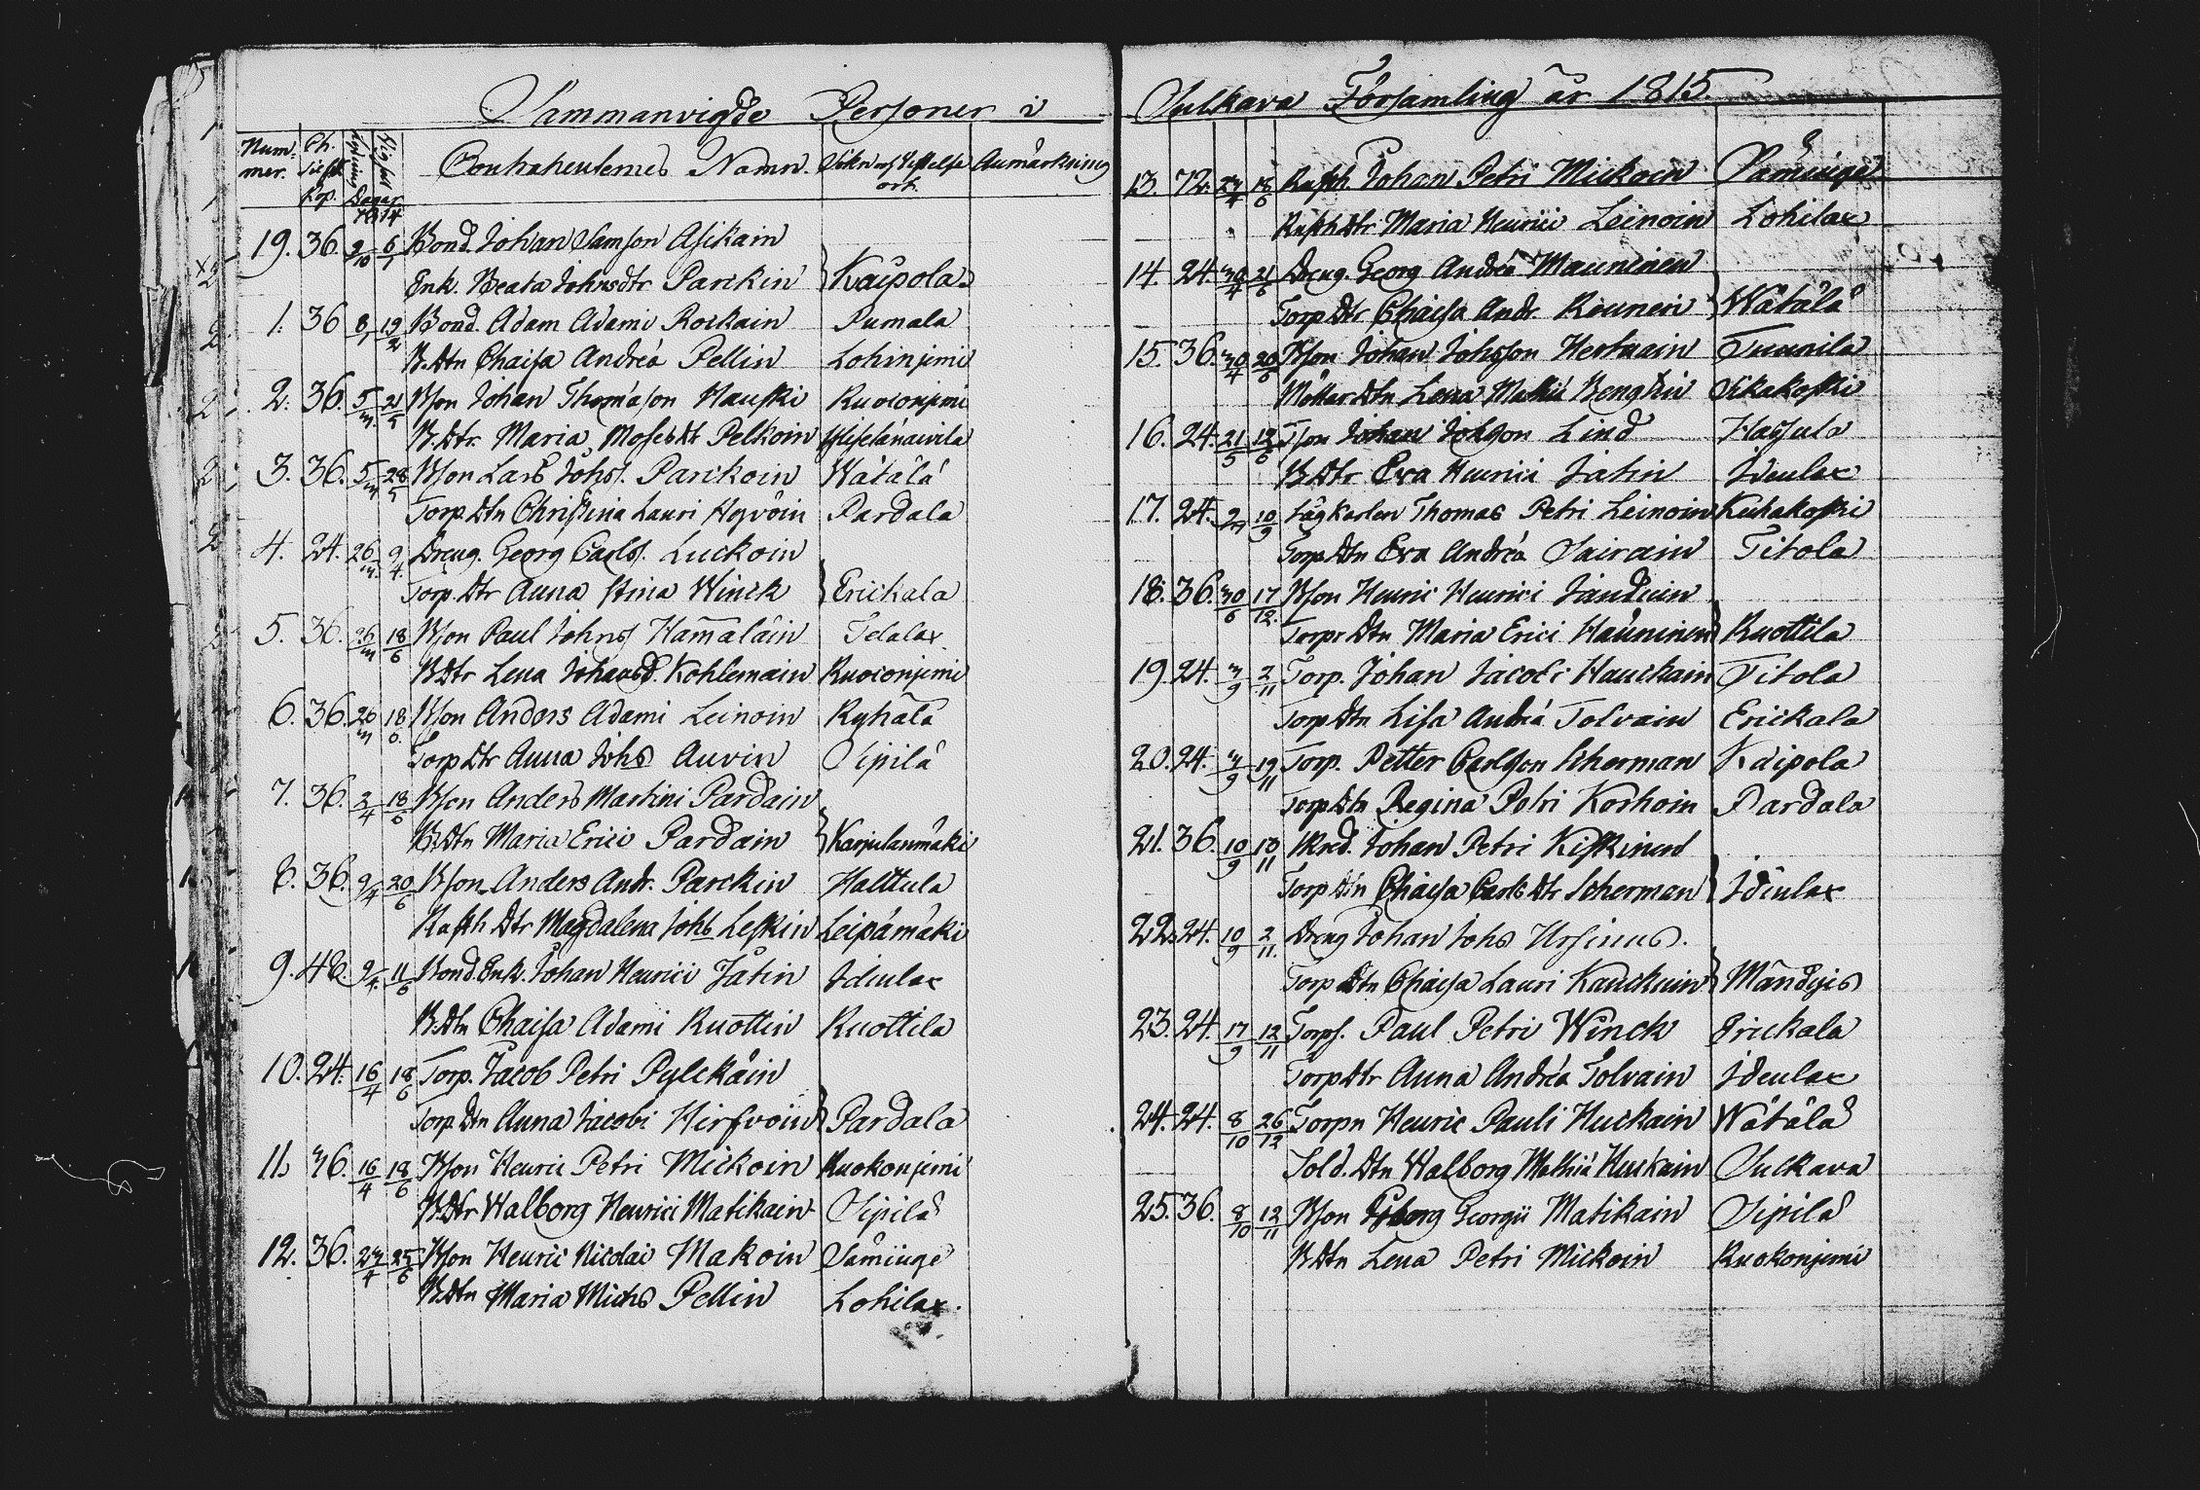 Sammanvigde Personer i
Num-mer. Ch. Sigill. Kop. Lysning Vigsel Dagar Contrahenternes Namn. Anmärkning
1814
19. 36. 9/10 6/1 Bond. Johan Samson Asikain
Enk. Beata Johnsdtr Parckin } Kaipola
1. 36 8/1 19/2 Bond. Adam Adami Rockain Pumala
B.Dtn Chaisa Andreæ Pellin Lohinjemi
2. 36. 5/m. 21/5 Bson Johan Thomason Hauski Ruoconjemi
B.Dtr. Maria Mosesdtr Pelkoin
3. 36. 5/m 28/5 Bson Lars Johs. Parckoin Wätälä
Torp.Dtn Christina Lauri Pardala
4. 24. 26/m. 9/4. Dreng. Georg Carls. Luckoin
Torp.Dtr Anna Stina Winck } Erickala
5. 36. 26/m 18/6 Bson Paul Johns Hämäläin Telalax
B.Dtr Lena Johansd. Kohlemain Ruoconjemi
6. 36. 26/m 18/6. Bson Anders Adami Leinoin Ryhälä
Torp Dtr Anna Johs Auvin Sipilä
7. 36. 2/4 18/6 Bson Anders Martini Pardain
B.Dtn Maria Erici Pardain } Karjulanmäki
8. 36. 9/4 20/6 Bson Anders Andr. Parckin Halttula
Dtr Magdalena Johs Leskin Leipämäki
9. 48. 9/4. 11/6 Bond.Enk. Johan Henrici Jätin Idiulax
B.Dtn Chaisa Adami Ruottin Ruottila
10. 24. 16/4 18/6 Torp. Jacob Petri Pylckäin
Torp.Dtn Anna Jacobi Hirfvöin } Pardala
11. 36. 16/4 18/6 Bson Henric Petri Mickoin Ruokonjemi
B.Dtr Walborg Henrici Matikain Sipilä
12. 36. 23/4 25/6 Bson Henric Nicolai Makoin Sämiuge
B.Dtn Maria Michs Pellin Lohilax.
Sulkava Församling år 1815.
13. 72. 23/4 18/6 Johan Petri Mickoin Sämiuge
Dtr Maria Henrici Leinoin Lohilax
14. 24. 30/4 21/6 Dreng. Georg Andreæ Mauninen
Torp Dtr Chaisa Andr. Reunen } Wätälä
15. 36. 30/4 20/6 Bson Johan Johsson Hertuain Tuunila
Dtn Lena Mathiæ Bengtin Sikakoski
16. 24. 21/5 12/6 Tson Johan Johson Lind Halttula
B.Dtr Eva Henrici Jätin Ideulax
17. 24. 10/9 Thomas Petri Leinoin Kuhakoski
Torp.Dtn Eva Andreæ Sairain Titola
18. 36. 30/6 17/12. Bson Henric Henrici Jänduin
Torpr Dtn Maria Erici Häuninen } Ruottila
19. 24. 3/9 2/11 Torp. Johan Jacobi Hauckain Titola
Torp.Dtn Lisa Andreæ Tolvain Erickala
20. 24. 3/9 19/11 Torp. Petter Carlson Scherman Kaipola
Torp.Dtn Regina Petri Korhoin Pardala
21. 36. 10/9 Johan Petri Kiskinen
Torp Dtn Chaisa Carls Dtr Scherman } Idiulax
22. 24. 10/9 2/11. Dreng Johan Johs Ursinus.
Torp Dtn Chaisa Lauri Kauckuin } Mändyis
23. 24. 17/9 12/11 Torps. Paul Petri Winck Erickala
Torp Dtr Anna Andreæ Tolvain Ideulax
24. 24. 8/10 26/12 Torpn Henric Pauli Huckain Wätälä
Sold. Dtn Walborg Mathiæ Huckain Sulkava
25. 36. 8/10 12/11 Bson Georg Georgii Matikain Sipilä
B.Dtn Lena Petri Mickoin Ruokonjemi